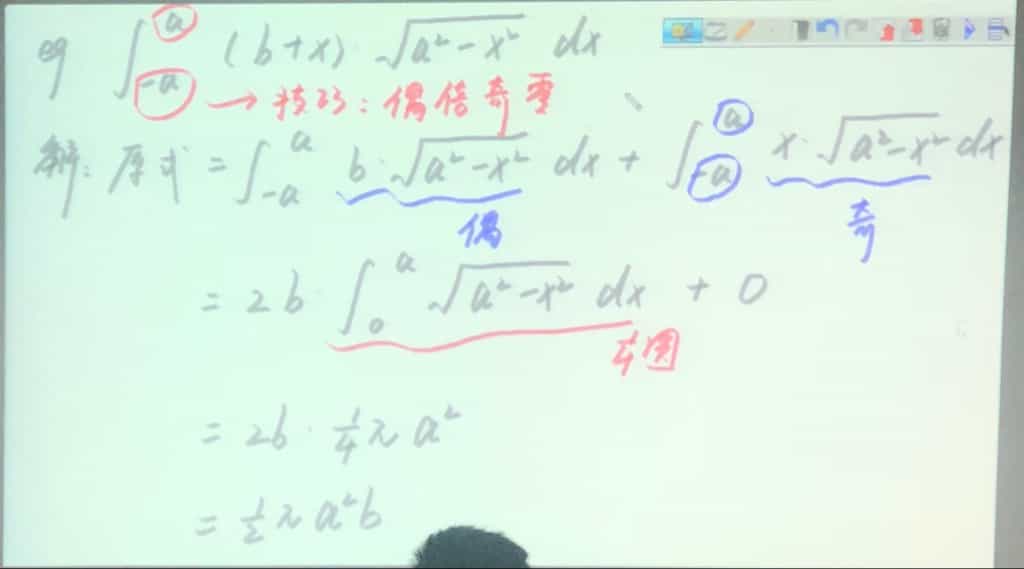 eg ∫_{-a}^{a} (b+x)·√(a²-x²) dx
→ 技巧：偶倍奇零
解：原式 = ∫_{-a}^{a} b·√(a²-x²) dx + ∫_{-a}^{a} x·√(a²-x²) dx
偶 奇
= 2b·∫_{0}^{a} √(a²-x²) dx + 0
¼圆
= 2b·¼πa²
= ½πa²b